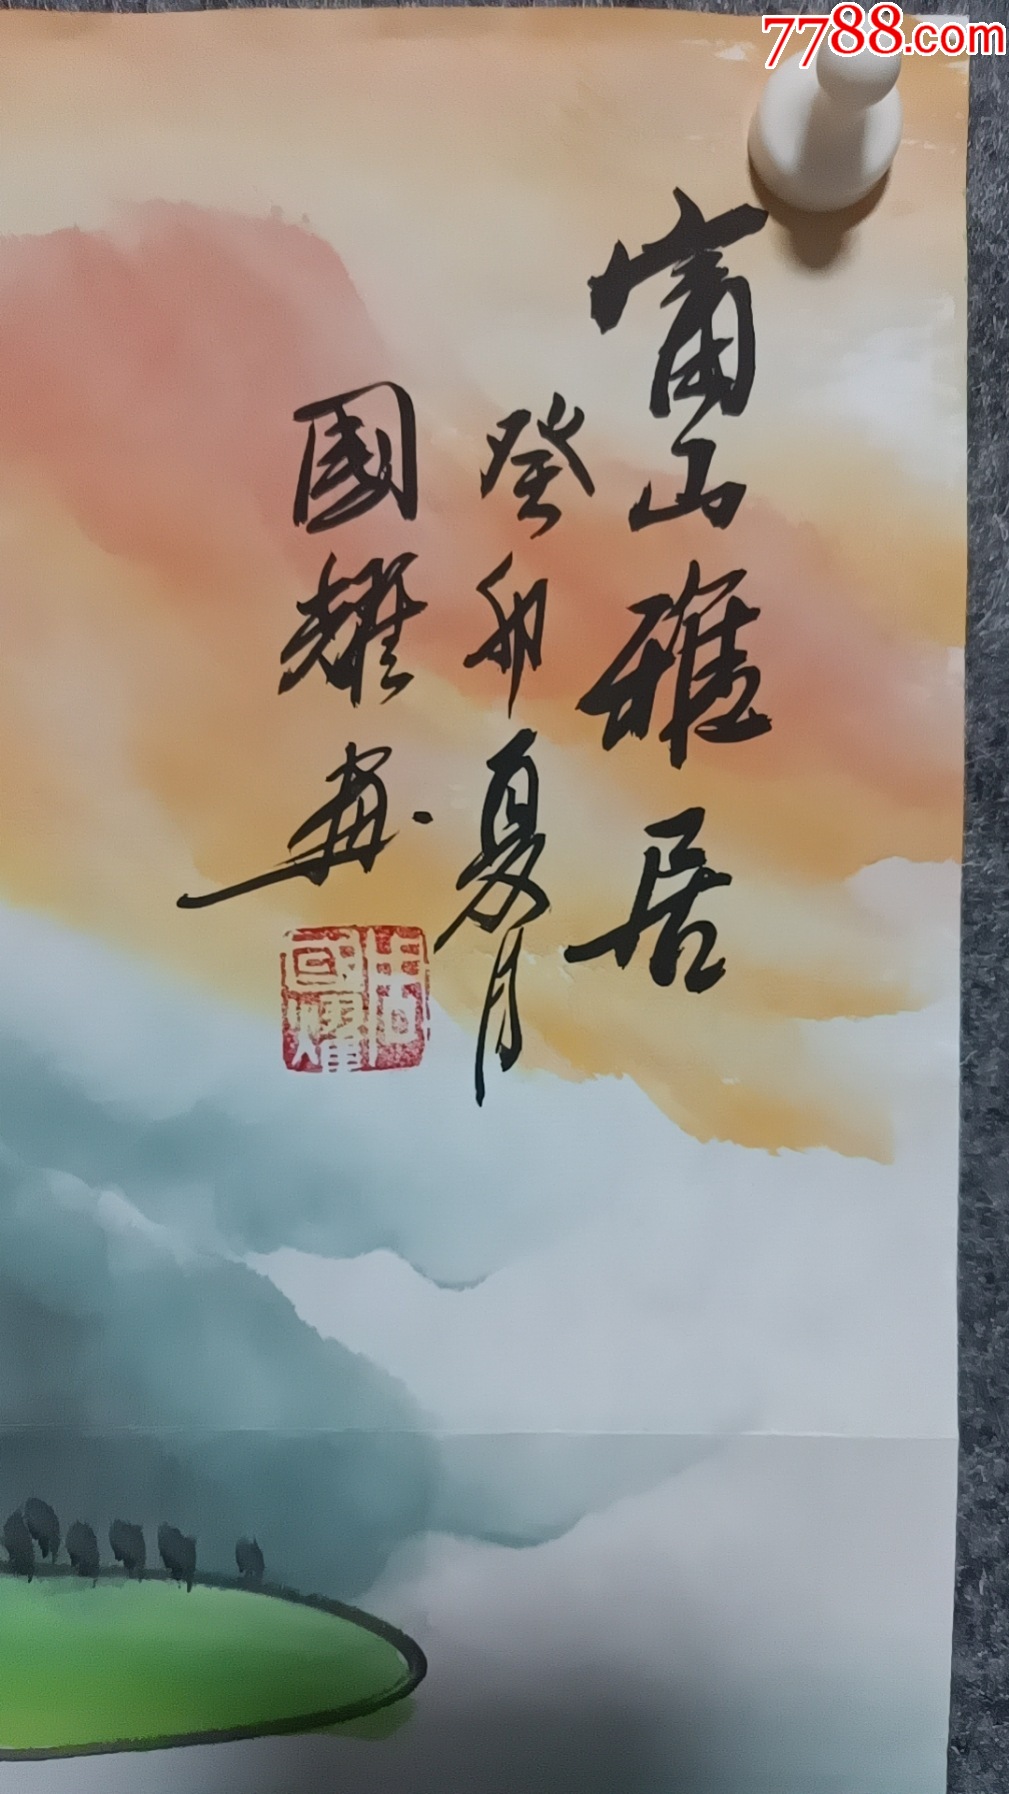 7788.com
富山雅居
癸卯夏月
國耀画
周國耀